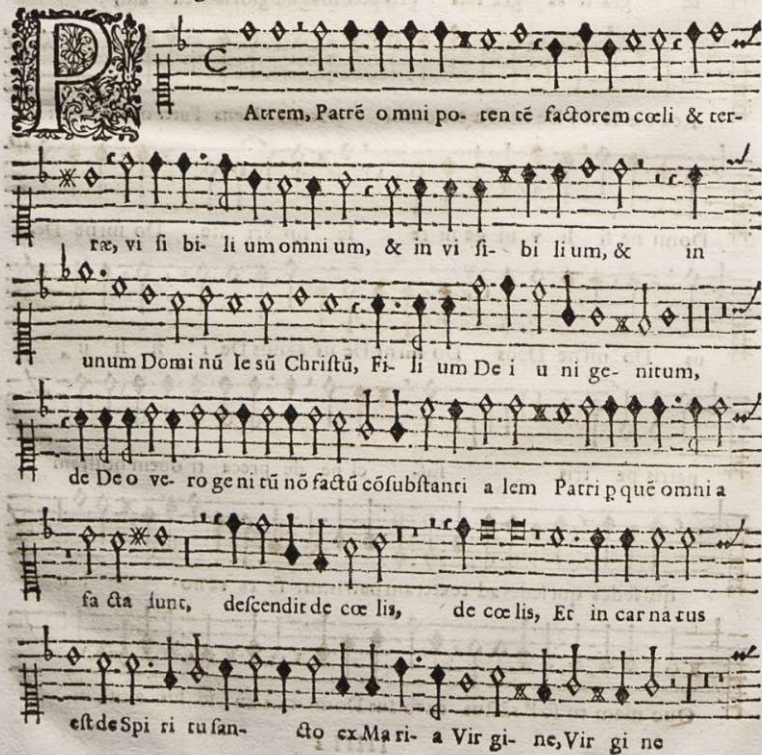 PAtrem, Patrē o mni po- ten tē factorem cœli & ter-
ræ, vi ſi bi- li um omni um, & in vi ſi- bi li um, & in
unum Domi nū Ie sū Chriſtū, Fi- li um De i u ni ge- nitum,
de De o ve- ro ge ni tū nō factū cōſubſtanti a lem Patri p quē omni a
fa cta ſunt, deſcendit de cœ lis, de cœ lis, Et in car na tus
eſt de Spi ri tu ſan- cto ex Ma ri- a Vir gi- ne, Vir gi ne